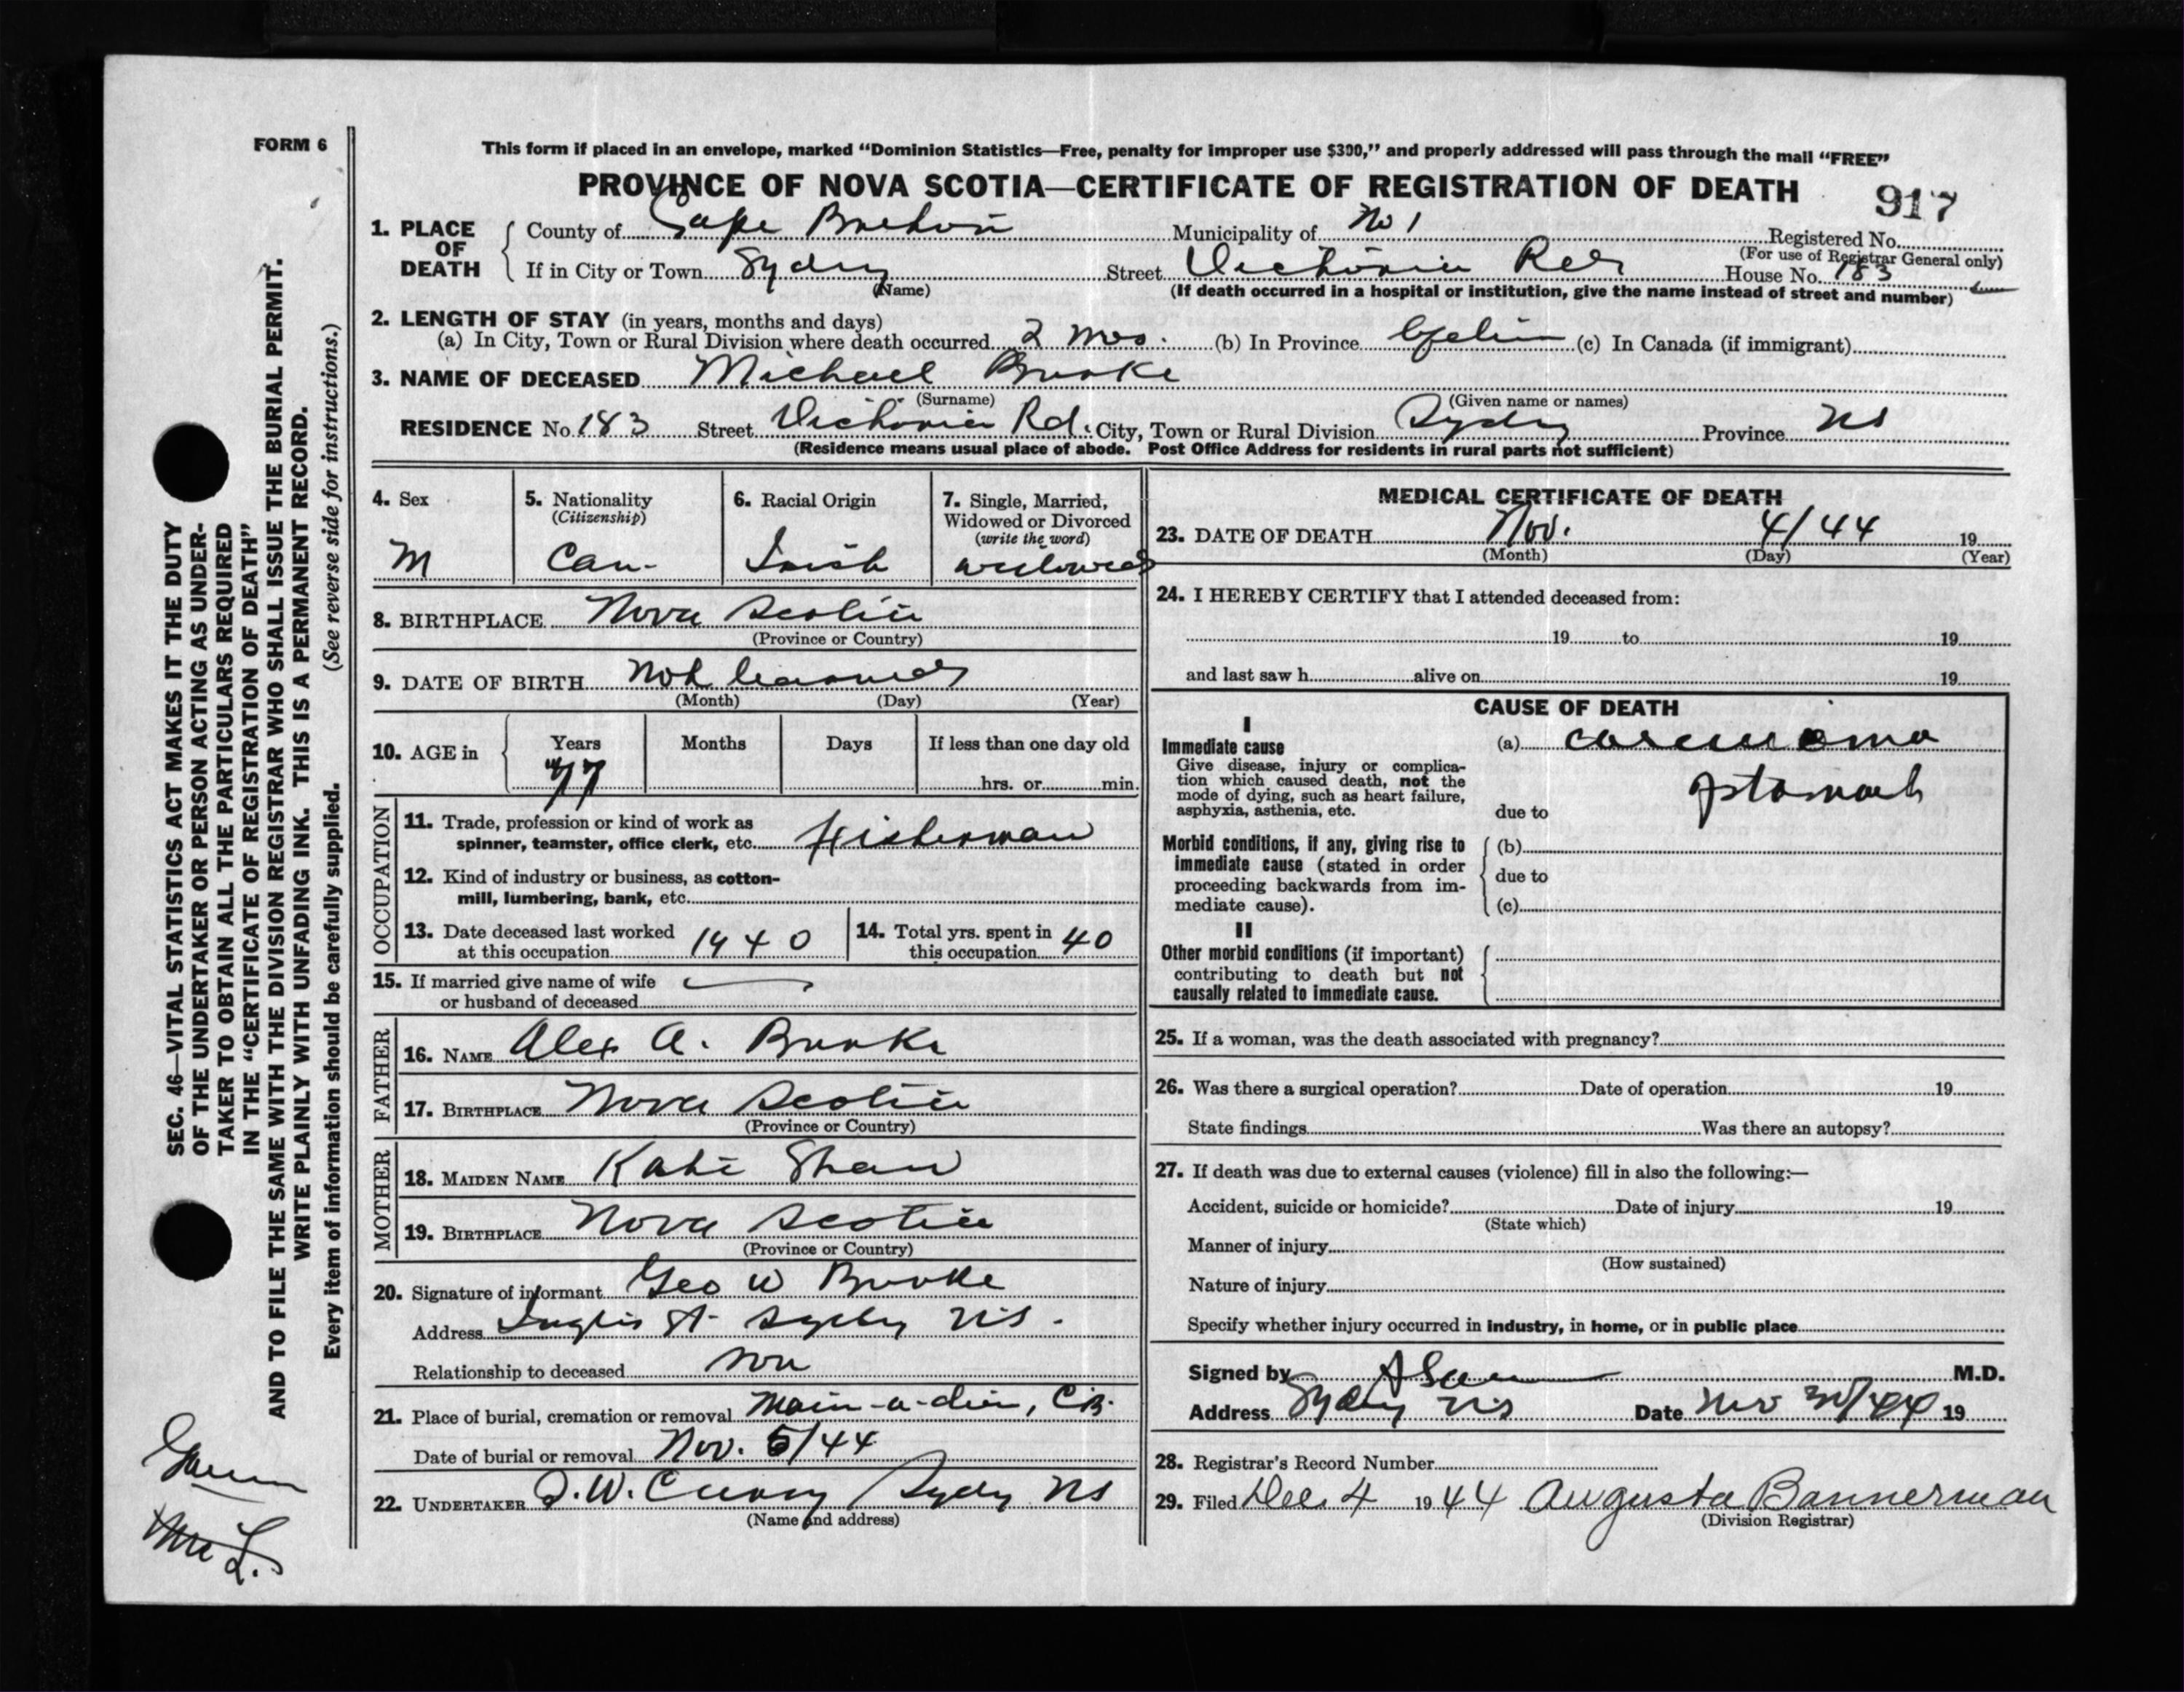 FORM 6
This form if placed in an envelope, marked “Dominion Statistics—Free, penalty for improper use $300,” and properly addressed will pass through the mail “FREE”
PROVINCE OF NOVA SCOTIA—CERTIFICATE OF REGISTRATION OF DEATH 917
1. PLACE OF DEATH
County of Cape Breton Municipality of No 1 Registered No.
(For use of Registrar General only)
If in City or Town Sydney Street Victoria Rd House No. 183
(Name) (If death occurred in a hospital or institution, give the name instead of street and number)
2. LENGTH OF STAY (in years, months and days)
(a) In City, Town or Rural Division where death occurred 2 mos. (b) In Province (c) In Canada (if immigrant)
3. NAME OF DECEASED Michael Burke
(Surname) (Given name or names)
RESIDENCE No. 183 Street Victoria Rd. City, Town or Rural Division Sydney Province NS
(Residence means usual place of abode. Post Office Address for residents in rural parts not sufficient)
4. Sex M
5. Nationality (Citizenship) Can-
6. Racial Origin Irish
7. Single, Married, Widowed or Divorced (write the word) widowed
8. BIRTHPLACE Nova Scotia
(Province or Country)
9. DATE OF BIRTH Not learned
(Month) (Day) (Year)
10. AGE in Years 77 Months Days If less than one day old
hrs. or min.
OCCUPATION
11. Trade, profession or kind of work as
spinner, teamster, office clerk, etc. Fisherman
12. Kind of industry or business, as cotton-
mill, lumbering, bank, etc.
13. Date deceased last worked
at this occupation 1940
14. Total yrs. spent in
this occupation 40
15. If married give name of wife
or husband of deceased
FATHER
16. NAME Alex A. Burke
17. BIRTHPLACE Nova Scotia
(Province or Country)
MOTHER
18. MAIDEN NAME Kate Shaw
19. BIRTHPLACE Nova Scotia
(Province or Country)
20. Signature of informant Geo W Burke
Address Inglis St Sydney NS.
Relationship to deceased son
21. Place of burial, cremation or removal Main-a-dieu, C.B.
Date of burial or removal Nov. 5/44
22. UNDERTAKER W. Curry Sydney NS
(Name and address)
MEDICAL CERTIFICATE OF DEATH
23. DATE OF DEATH Nov. 4/44 19
(Month) (Day) (Year)
24. I HEREBY CERTIFY that I attended deceased from:
19 to 19
and last saw h alive on 19
CAUSE OF DEATH
I
Immediate cause (a) carcinoma
Give disease, injury or complica-
tion which caused death, not the
mode of dying, such as heart failure,
asphyxia, asthenia, etc.
due to stomach
Morbid conditions, if any, giving rise to
immediate cause (stated in order
proceeding backwards from im-
mediate cause).
(b)
due to
(c)
II
Other morbid conditions (if important)
contributing to death but not
causally related to immediate cause.
25. If a woman, was the death associated with pregnancy?
26. Was there a surgical operation? Date of operation 19
State findings Was there an autopsy?
27. If death was due to external causes (violence) fill in also the following:—
Accident, suicide or homicide? Date of injury 19
(State which)
Manner of injury
(How sustained)
Nature of injury
Specify whether injury occurred in industry, in home, or in public place
Signed by M.D.
Address Sydney NS Date Nov 30/44 19
28. Registrar's Record Number
29. Filed Dec. 4 1944 Augusta Bannerman
(Division Registrar)
SEC. 46—VITAL STATISTICS ACT MAKES IT THE DUTY
OF THE UNDERTAKER OR PERSON ACTING AS UNDER-
TAKER TO OBTAIN ALL THE PARTICULARS REQUIRED
IN THE “CERTIFICATE OF REGISTRATION OF DEATH”
AND TO FILE THE SAME WITH THE DIVISION REGISTRAR WHO SHALL ISSUE THE BURIAL PERMIT.
WRITE PLAINLY WITH UNFADING INK. THIS IS A PERMANENT RECORD.
Every item of information should be carefully supplied. (See reverse side for instructions.)